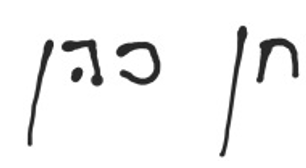 חן כהן